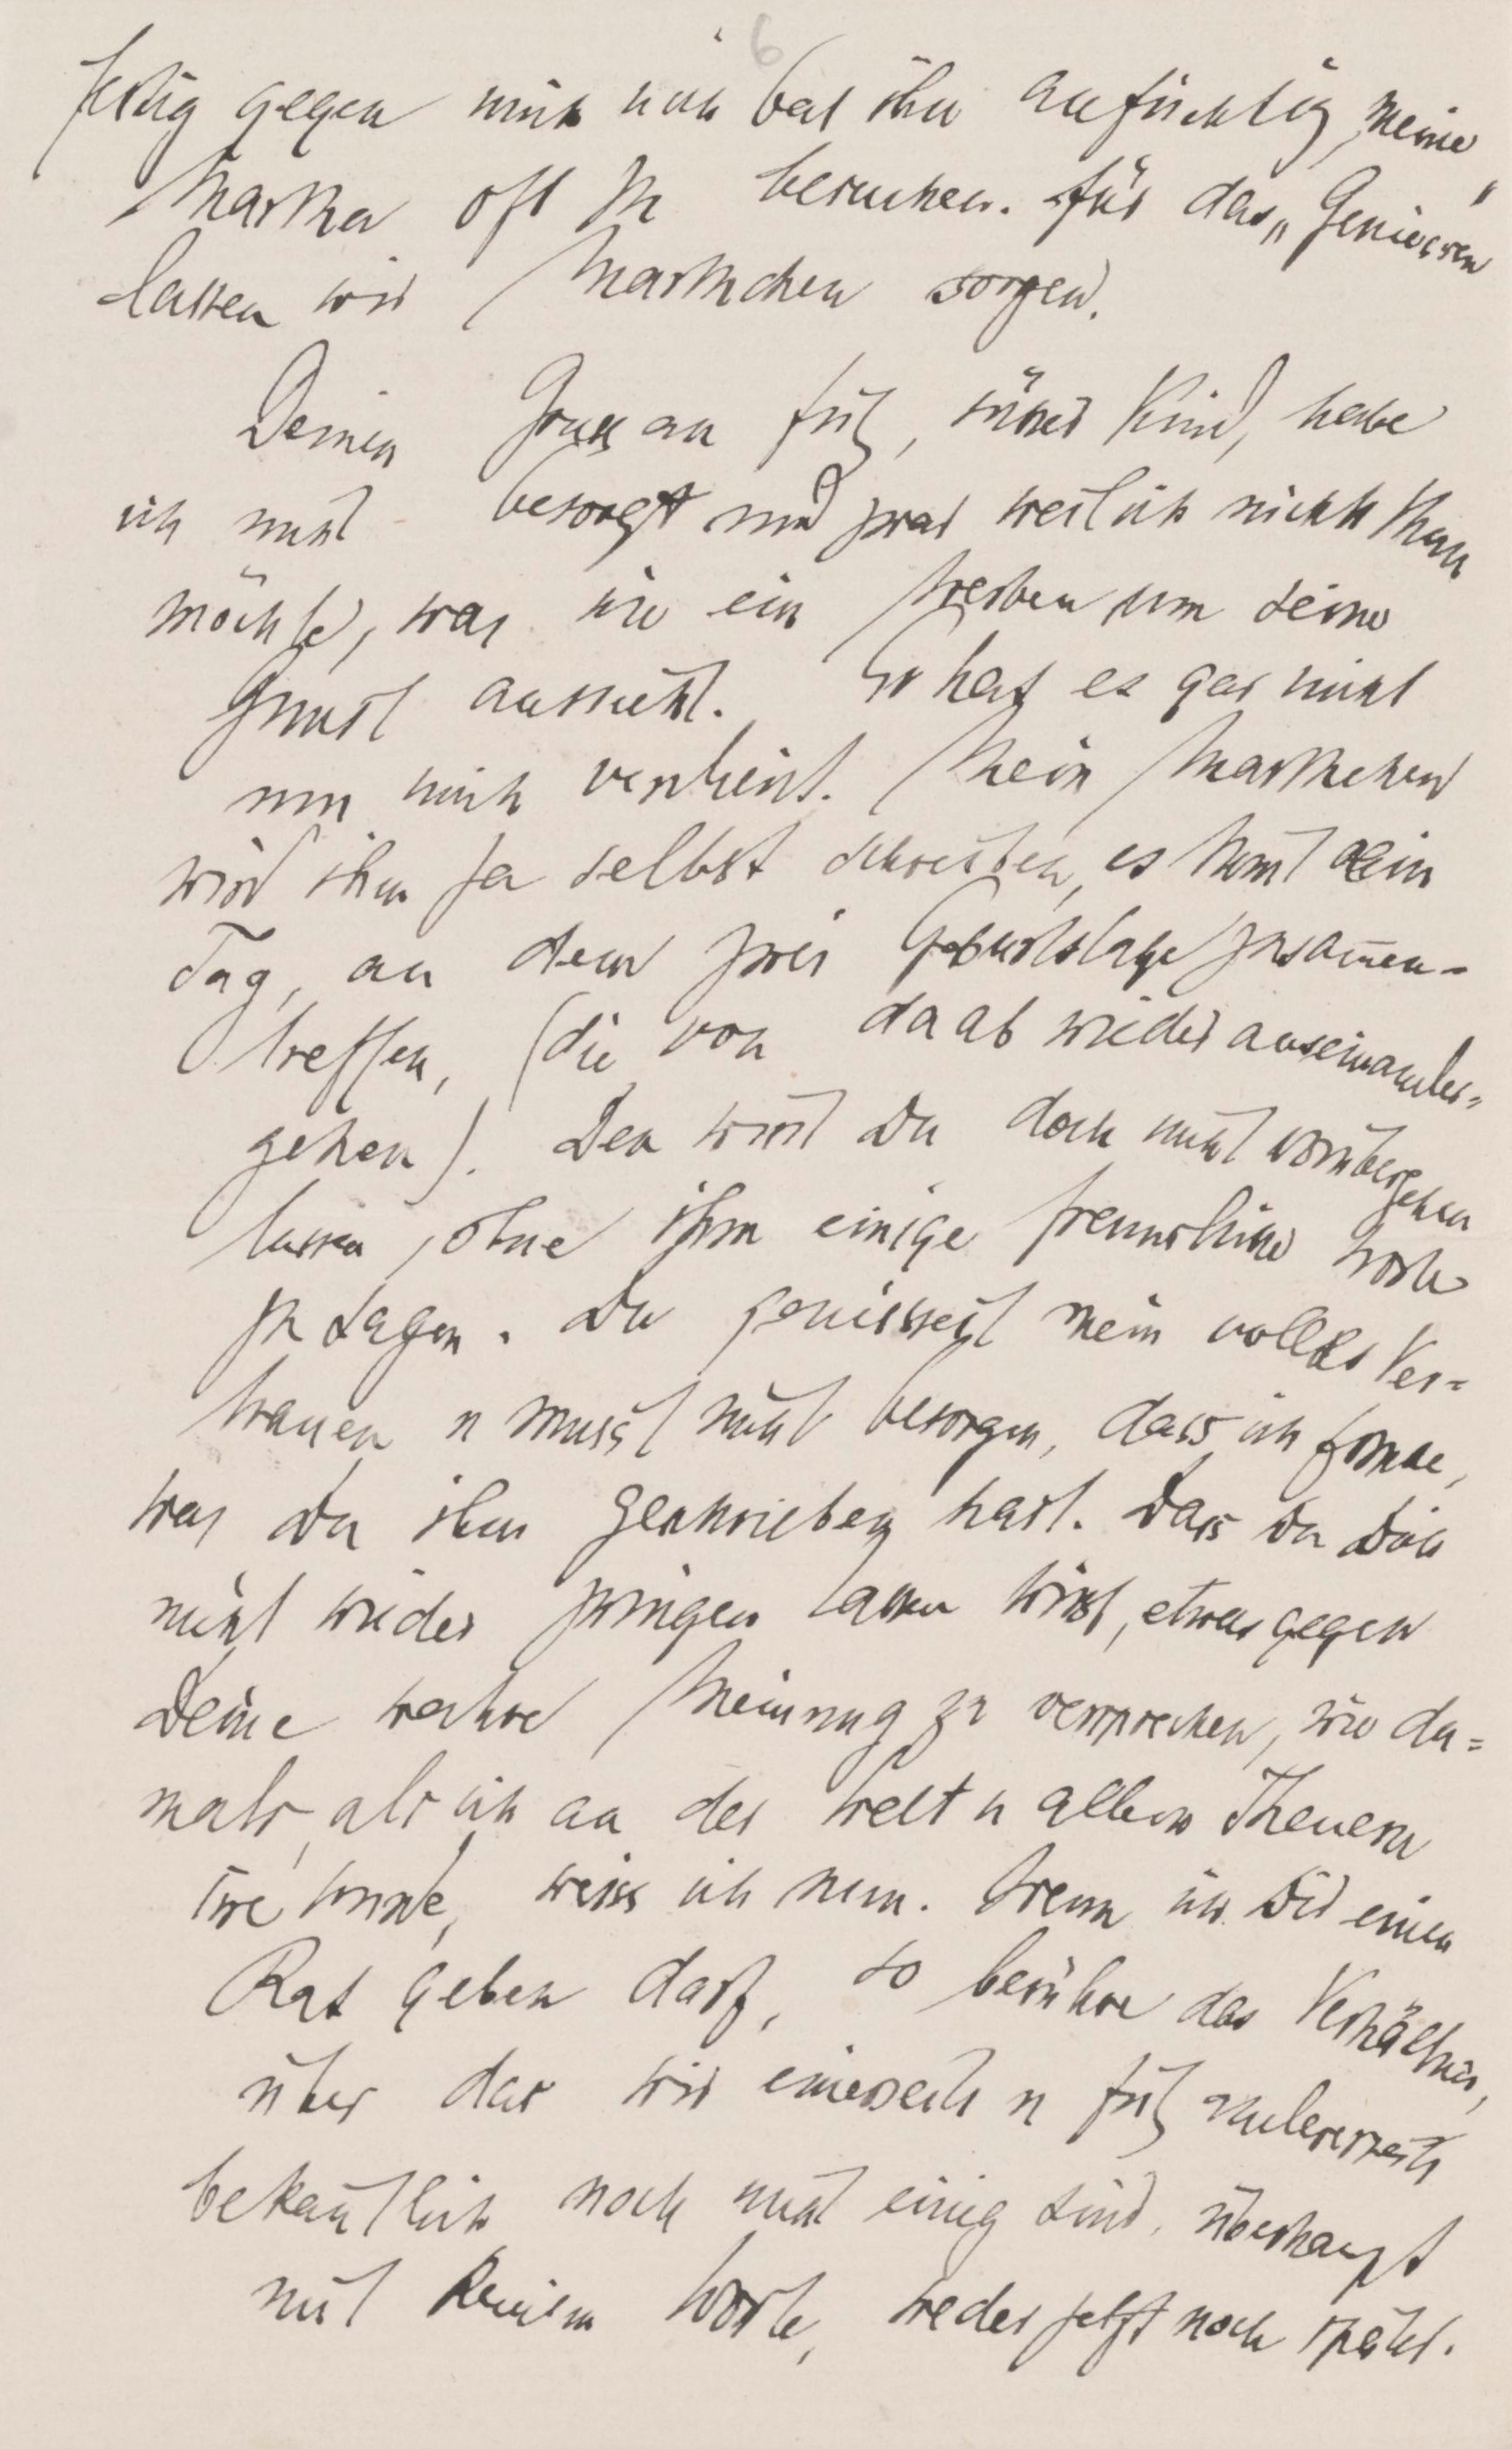 6
artig gegen mich und bat ihn aufrichtig, meine
Martha oft zu besuchen. Für das „Geniessen“
lassen wir Marthchen sorgen.
Deinen Gruss an Fritz, süßes Kind, habe
ich nicht besorgt und zwar weil ich nichts thun
möchte, was wie ein Werben um seine
Gunst aussieht. Er hat es gar nicht
um mich verdient. Mein Marthchen
wird ihm ja selbst schreiben, es kom̄t ein
Tag, an dem zwei Geburtstage zusam̄en-
treffen, (die von da ab wieder auseinander-
gehen). Den wirst Du doch nicht vorübergehen
lassen, ohne ihm einige freundliche Worte
zu sagen. Du geniessest mein vollstes Ver-
trauen u musst nicht besorgen, dass ich frage,
was Du ihm geschrieben hast. Dass Du Dich
nicht wieder zwingen lassen wirst, etwas gegen
Deine wahre Meinung zu versprechen, wie da-
mals, als ich an der Welt u allem Theuern
irre wurde, weiss ich nun. Wenn ich Dir einen
Rat geben darf, so berühre das Verhältnis,
über das wir einerseits u Fritz andererseits
bekan̄tlich noch nicht einig sind, überhaupt
mit keinem Worte, weder jetzt noch später.